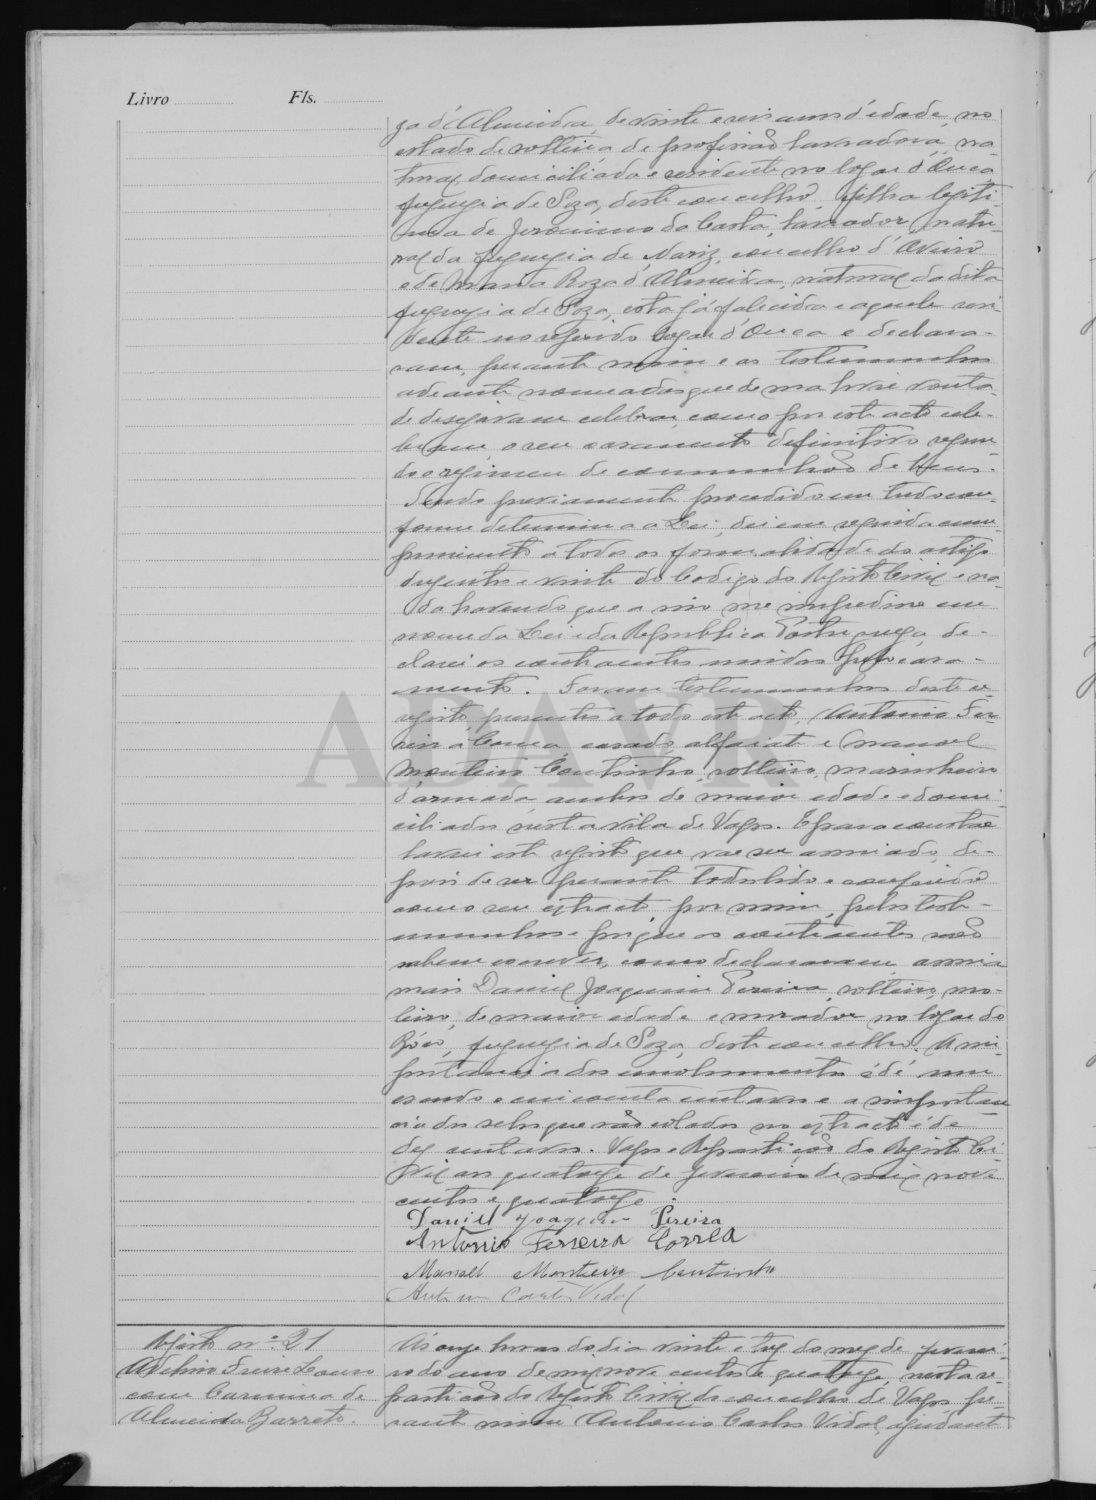 Livro Fls.
ga d'Almeida, de vinte e seis anos d'edade, no
estado de solteira, de profissão lavradora, na-
tural, domiciliada e residente no logar d'Ouca,
freguezia de Soza, deste concelho, filha legiti-
ma de Jeronimo da Costa, lavrador, natu-
ral da freguezia de Nariz, concelho d'Aveiro
e de Maria Roza d'Almeida, natural da dita
freguezia de Soza, esta já falecida e aquele resi-
dente no referido logar d'Ouca e declara-
ram, perante mim e as testemunhas
adeante nomeadas que de sua livre vonta-
de desejavam celebrar, como por este acto cele-
bram, o seu casamento definitivo segun-
do o regimen de communhão de bens.
Tendo previamente procedido em tudo con-
forme determina a Lei, dei em seguida cum-
primento a todas as formalidades do artigo
duzentos e vinte do Codigo do Registo Civil e na-
da havendo que a isso me impedisse em
nome da Lei e da Republica Portugueza, de-
clarei os contraentes unidos pelo casa-
mento. Foram testemunhas deste re-
gisto, presentes a todo este acto, Antonio Fer-
reira Correa, casado, alfaiate e Manoel
Monteiro Coutinho, solteiro, marinheiro
d'armada, ambos de maior edade e domi-
ciliados nesta vila de Vagos. E para constar
lavrei este registo que vae ser assinado, de-
pois de ser perante todos lido e conferido
com o seu extracto, por mim, pelas teste-
munhas e porque os contraentes não
sabem escrever, como declararam, assina
mais Daniel Joaquim Pereira, solteiro, mo-
leiro, de maior edade e morador no logar do
freguezia de Soza, deste concelho. A im-
portancia dos emolumentos é de um
escudo e cincoenta centavos e a importan-
cia dos selos que vão colados no extracto é de
dez centavos. Vagos e Repartição do Registo Ci-
vil aos quatorze de fevereiro de mil nove
centos e quatorze.
Daniel Joaquim Pereira
Antonio Ferreira Correa
Manoel Monteiro Coutinho
Antonio Carlos Vidal
ADAVR
Registo nº 21
Freire Louro
com Carmina de
Almeida Barreto.
Ás onze horas do dia vinte e tres do mez de feverei-
ro do ano de mil nove centos e quatorze, nesta re-
partição do Registo Civil do concelho de Vagos, pe-
rante mim Antonio Carlos Vidal, ajudante